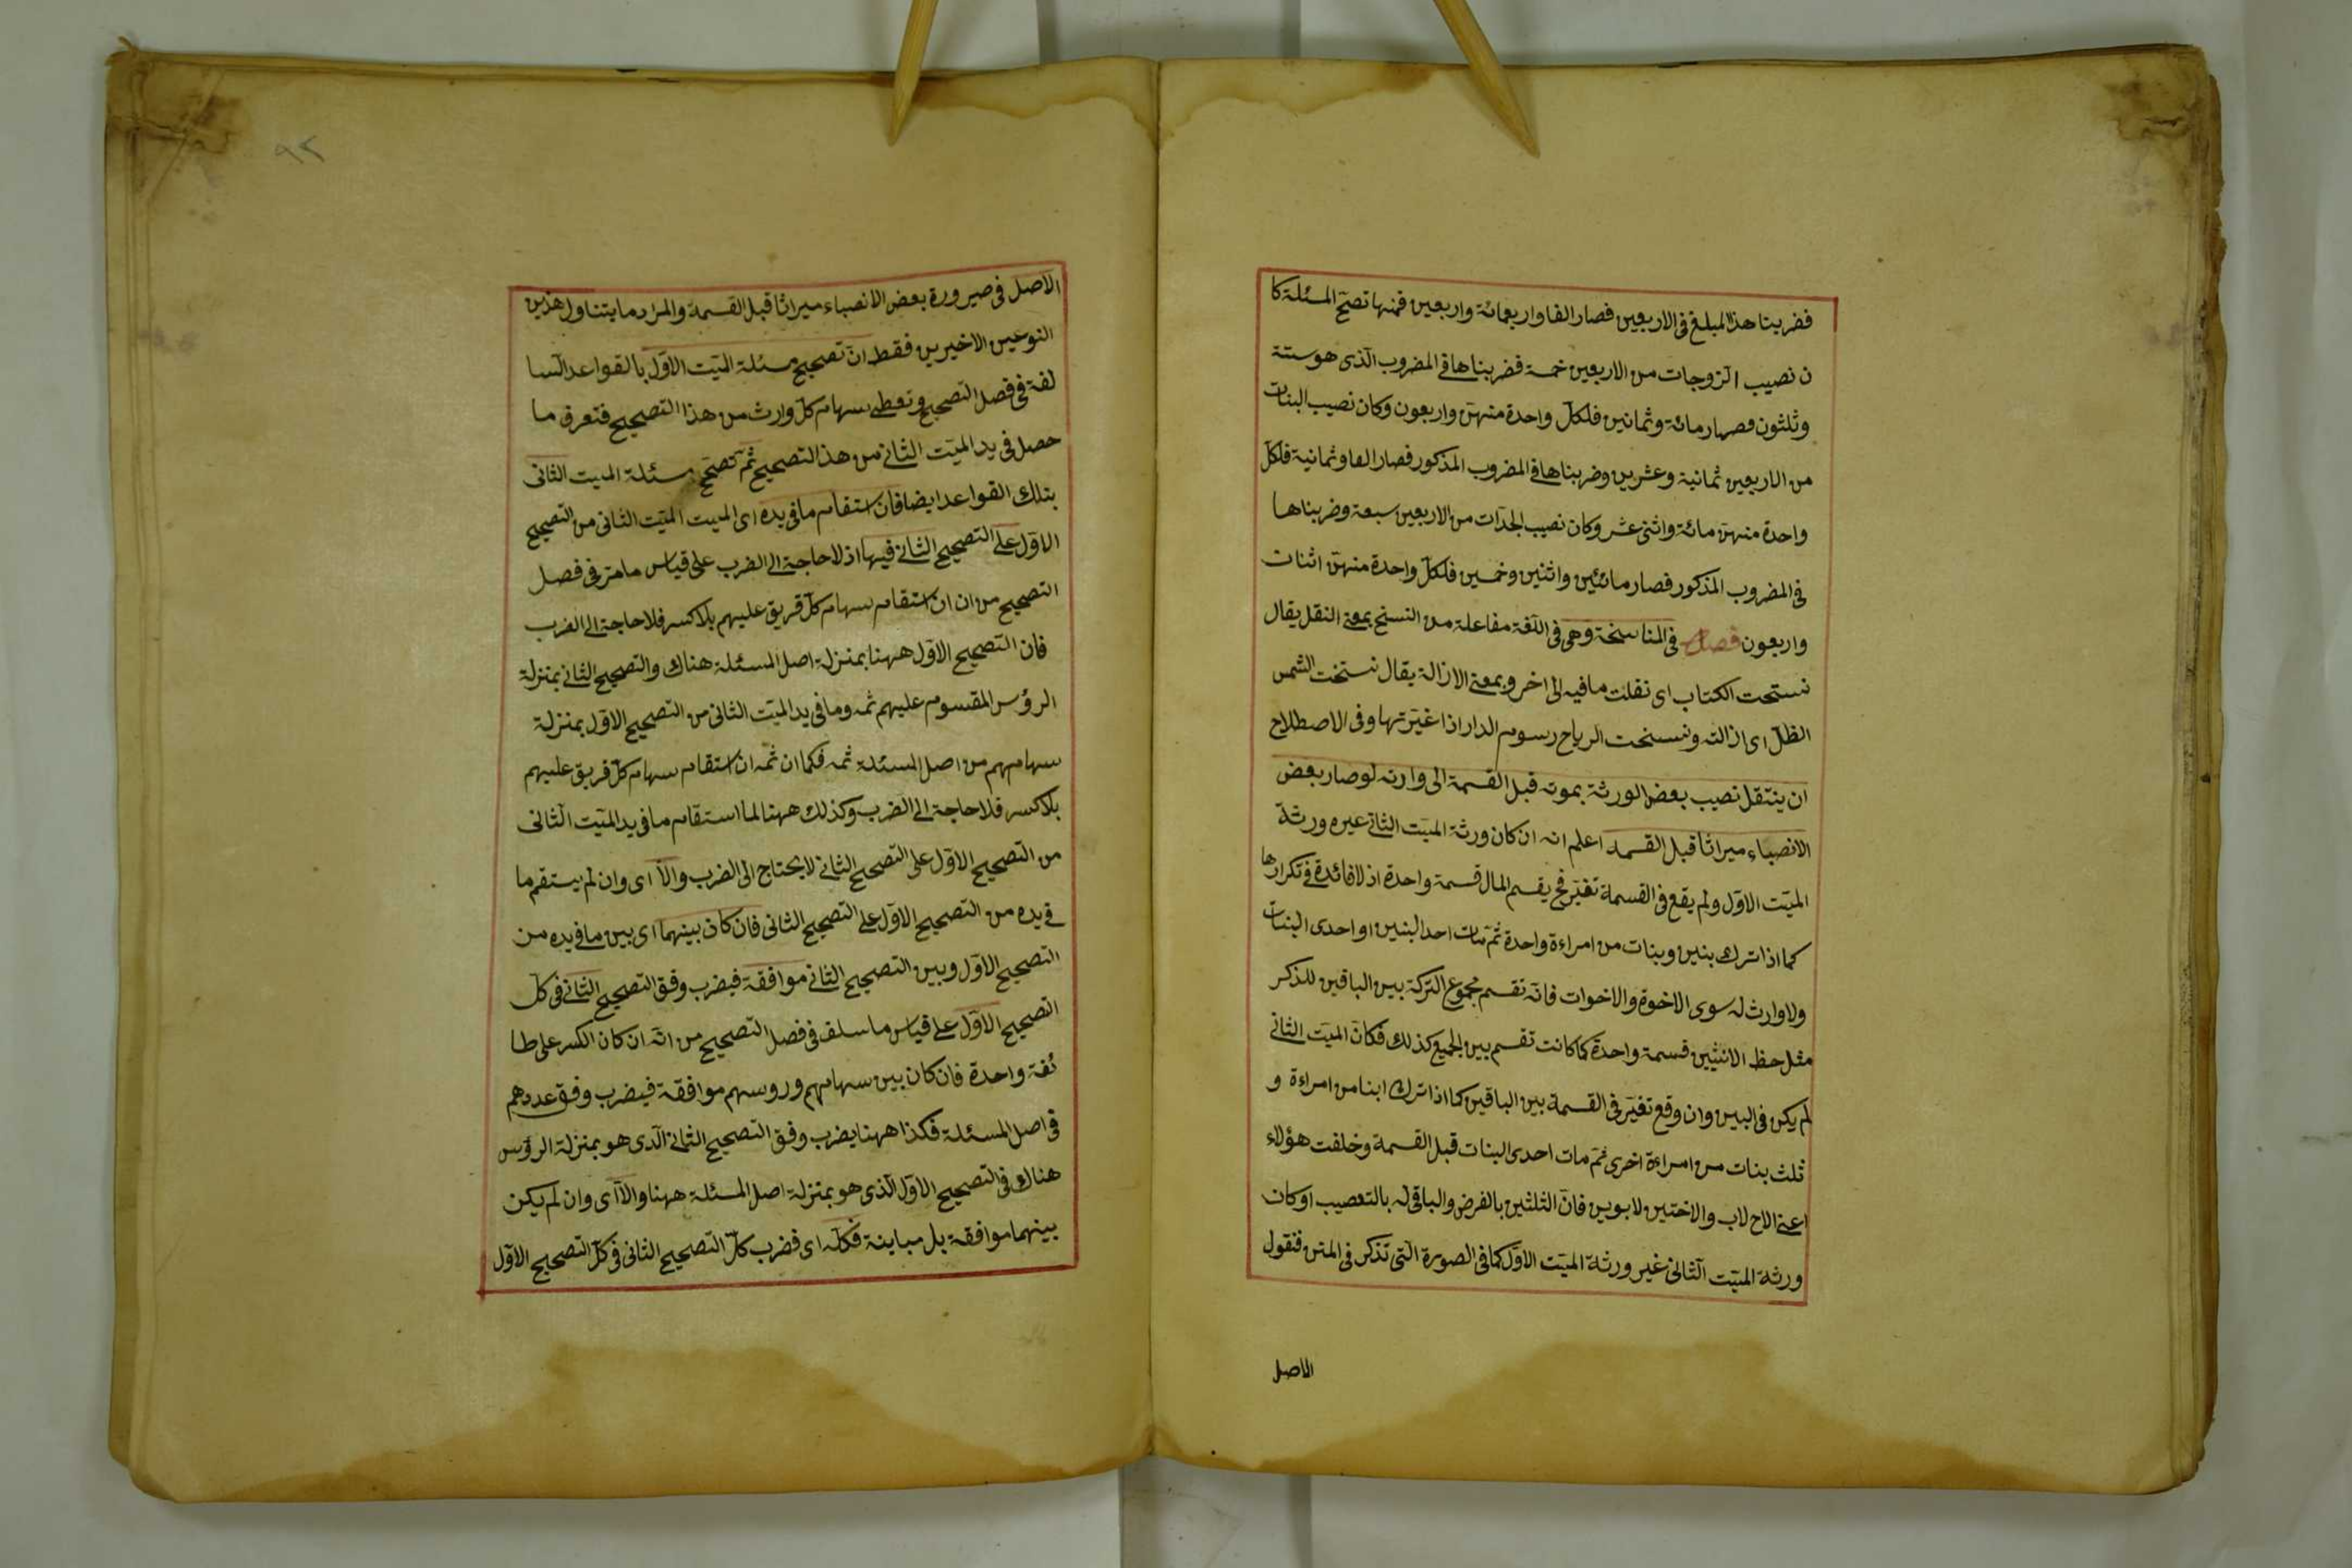 فضربنا هذا المبلغ فى الاربعين فصار الفا واربعمائة واربعين فمنها تصحّ المسئلة كا
ن نصيب الزوجات من الاربعين خمسة فضربناها فى المضروب الذى هو ستة
وثلثون فصار مائة وثمانين فلكلّ واحدة منهن واربعون وكان نصيب البنات
من الاربعين ثمانية وعشرين وضربناها فى المضروب المذكور فصار الفا وثمانية فلكلّ
واحدة منهن مائة واثنى عشر وكان نصيب الجدات من الاربعين سبعة وضربناها
فى المضروب المذكور فصار مائتين واثنين وخمسين فلكلّ واحدة منهن اثنات
واربعون فصل فى المناسخة وهى فى اللغة مفاعلة من النسخ بمعنى النقل يقال
نسخت الكتاب اى نقلت ما فيه الى اخر وبمعنى الازالة يقال نسخت الشمس
الظلّ اى ازالته ونسخت الرياح رسوم الدار اذا غيّرتها وفى الاصطلاح
ان ينتقل نصيب بعض الورثة بموته قبل القسمة الى وارثه لوصار بعض
الانصباء ميراثا قبل القسمة اعلم انه ان كان ورثة الميّت الثانى عيره ورثة
الميّت الاوّل ولم يقع فى القسمة تغيّر فح يقسم المال قسمة واحدة اذ لا فائدة فى تكرارها
كما اذا ترك بنين وبنات من امراءة واحدة ثم مات احد البنين او احدى البنات
ولا وارث له سوى الاخوة والاخوات فانّه تقسم مجموع التركة بين الباقين للذكر
مثل حظ الانثيين قسمة واحدة كما كانت تقسم بين الجميع كذلك فكانّ الميّت الثانى
لم يكن فى البين وان وقع تغيّر فى القسمة بين الباقين كما اذا ترك ابنا من امراءة و
ثلث بنات من امراءة اخرى ثم مات احدى البنات قبل القسمة وخلفت هؤلاء
اعنى الاخ لاب والاختين لابوين فانّ الثلثين بالفرض والباقى له بالتعصيب او كان
ورثة الميّت الثانى غير ورثة الميّت الاوّل كما فى الصورة التى تذكر فى المتن فنقول
الاصل
٩٢
الاصل فى صيرورة بعض الانصباء ميراثا قبل القسمة والمراد ما يتناول هذين
النوعين الاخيرين فقط انّ تصحيح مسئلة الميّت الاوّل بالقواعد السا
لفة فى فصل التصحيح وتعطى سهام كلّ وارث من هذا التصحيح فتعرف ما
حصل فى يد الميّت الثانى من هذ التصحيح ثمّ تصحّح مسئلة الميت الثانى
بتلك القواعد ايضا فان استقام ما فى يده اى الميت الميّت الثانى من التصحيح
الاوّل على التصحيح الثانى فيها اذ لا حاجة الى الضرب على قياس ما مرّ فى فصل
التصحيح من ان ان استقام سهام كلّ فريق عليهم بلا كسر فلا حاجة الى الضرب
فان التصحيح الاوّل ههنا بمنزلة اصل المسئلة هناك والتصحيح الثانى بمنزلة
الرؤس المقسوم عليهم ثمه وما فى يد الميّت الثانى من التصحيح الاوّل بمنزلة
سهامهم من اصل المسئلة ثمه فكما ان ثمه ان استقام سهام كلّ فريق عليهم
بلا كسر فلا حاجة الى الضرب وكذلك ههنا لما استقام ما فى يد الميّت الثانى
من التصحيح الاوّل على التصحيح الثانى لا يحتاج الى الضرب والاّ اى وان لم يستقم ما
فى يده من التصحيح الاوّل على التصحيح الثانى فان كان بينهما اى بين ما فى يده من
التصحيح الاوّل وبين التصحيح الثانى موافقة فيضرب وفق التصحيح الثانى فى كلّ
التصحيح الاوّل على قياس ما سلف فى فصل التصحيح من انّه ان كان الكسر على طا
ئفة واحدة فان كان بين سهامهم وروسهم موافقة فيضرب وفق عددهم
فى اصل المسئلة فكذا ههنا يضرب وفق التصحيح الثانى الّذى هو بمنزلة الرؤس
هناك فى التصحيح الاوّل الّذى هو بمنزلة اصل المسئلة ههنا والاّ اى وان لم يكن
بينهما موافقة بل مباينة فكلّه اى فضرب كلّ التصحيح الثانى فى كلّ التصحيح الاوّل